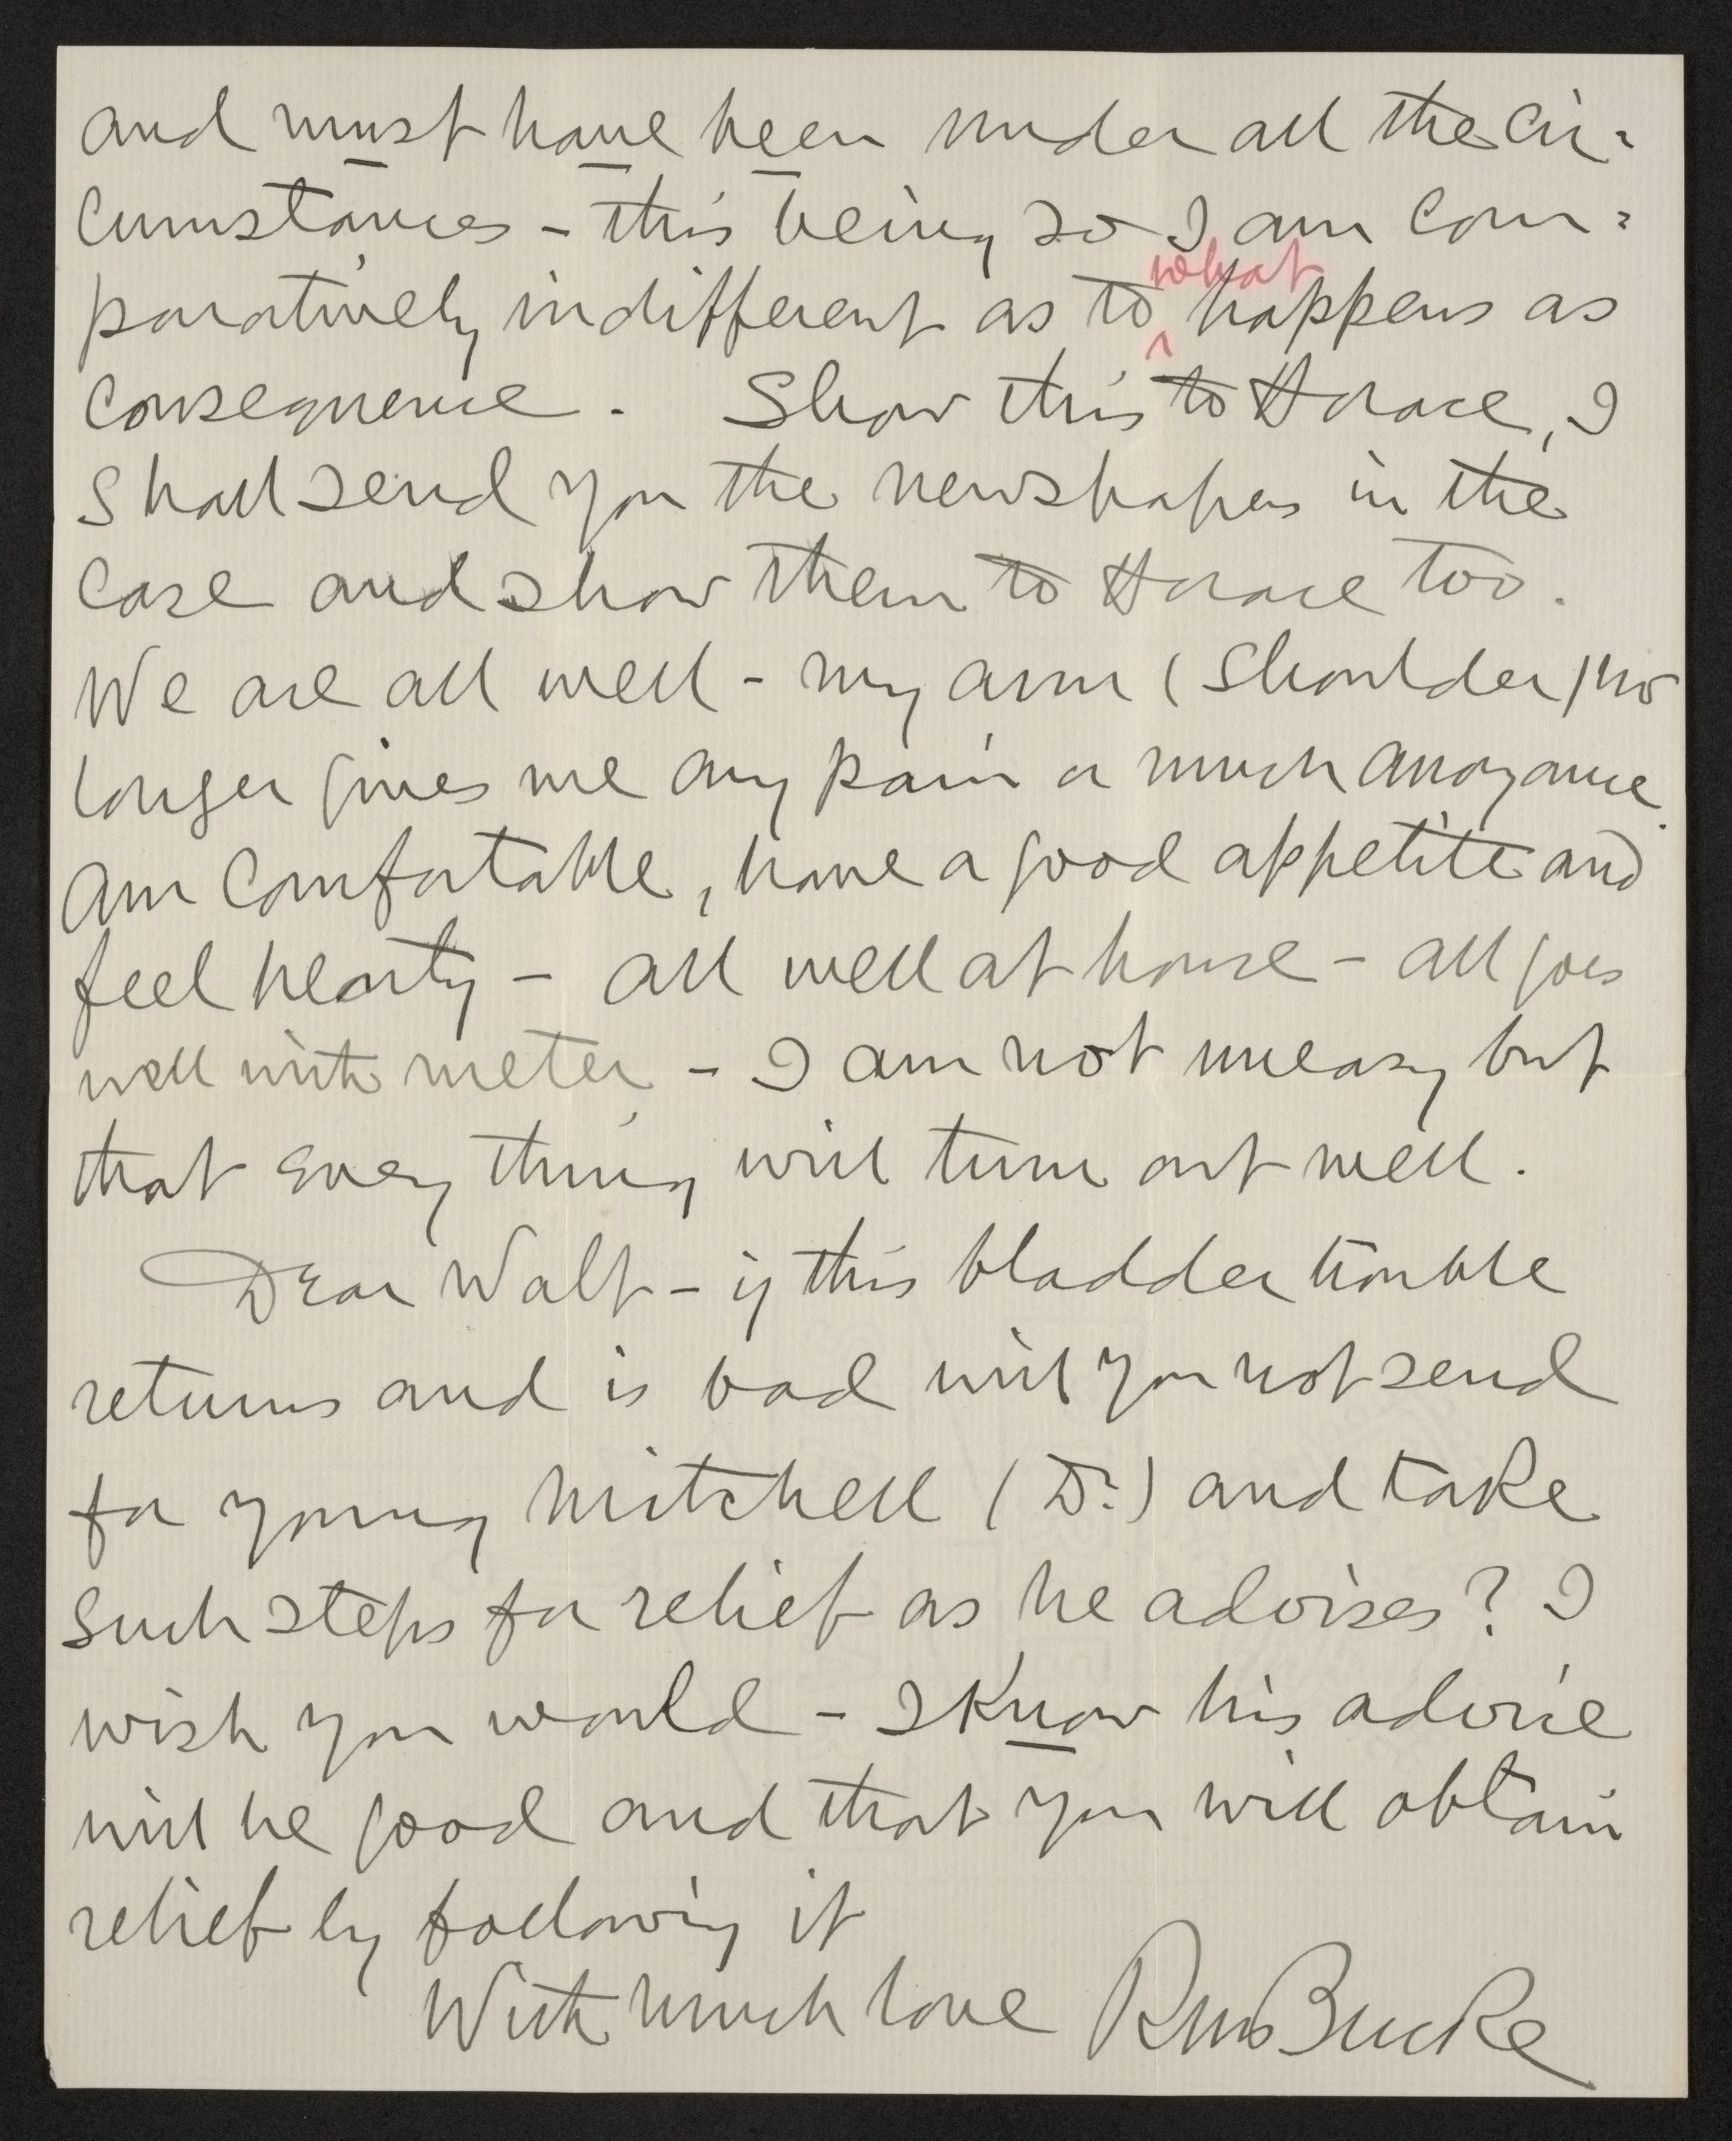 and must have been under all the cir-
cumstances - this being so I am com-
what
paratively indifferent as to ^ happens as
consequence. Show this to Horace, I
shall send you the newspapers in the
case and show them to Horace too.
We are all well - my arm (shoulder) no
longer gives me any pain or much anoyance.
Am comfortable, have a good appetite and
feel hearty - all well at house - all goes
well with meter - I am not uneasy but
that every thing will turn out well.
Dear Walt - if this bladder trouble
returns and is bad will you not send
for young Mitchell (Dr.) and take
such steps for relief as he advises? I
wish you would - I know his advice
will be good and that you will obtain
relief by following it
With much love RM Bucke